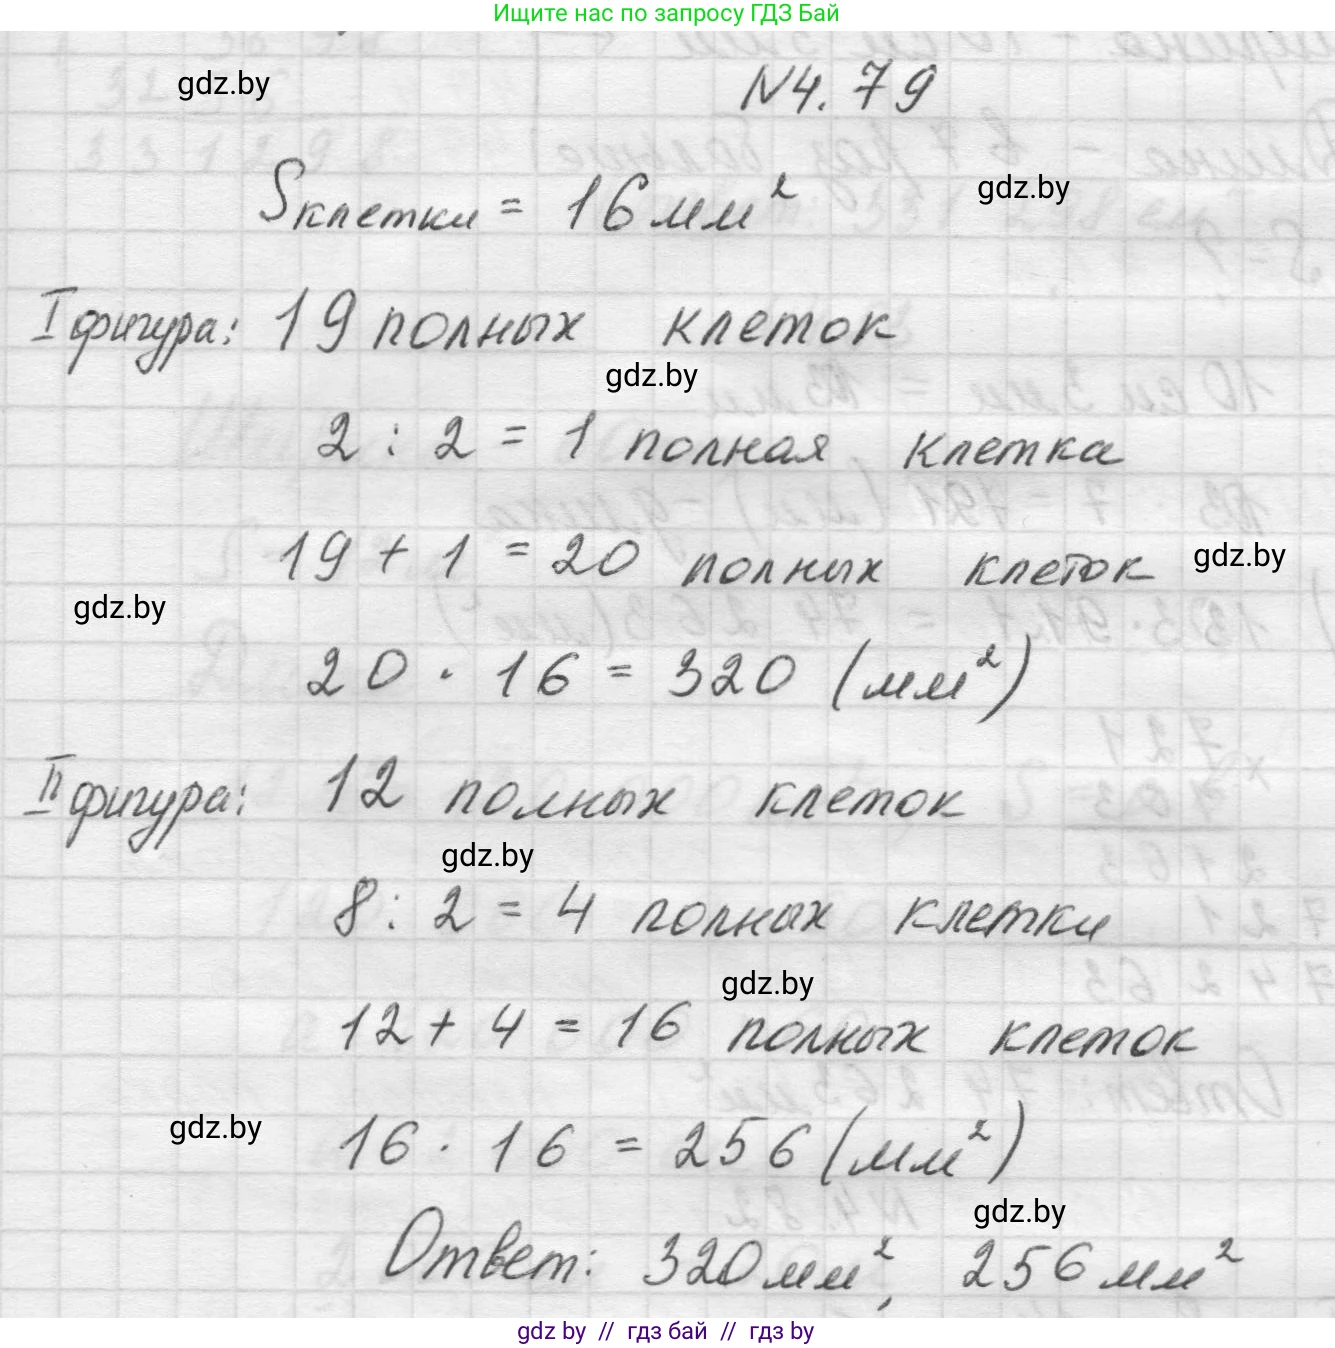 Ищите нас по запросу ГДЗ Бай
gdz.by
N4.79
Sклетки = 16 мм²
gdz.by
I фигура: 19 полных клеток
gdz.by
2 : 2 = 1 полная клетка
19 + 1 = 20 полных клеток
gdz.by
gdz.by
20 · 16 = 320 (мм²)
II фигура: 12 полных клеток
gdz.by
8 : 2 = 4 полных клетки
gdz.by
12 + 4 = 16 полных клеток
gdz.by
16 · 16 = 256 (мм²)
gdz.by
Ответ: 320 мм², 256 мм²
gdz by // гдз бай // гдз by